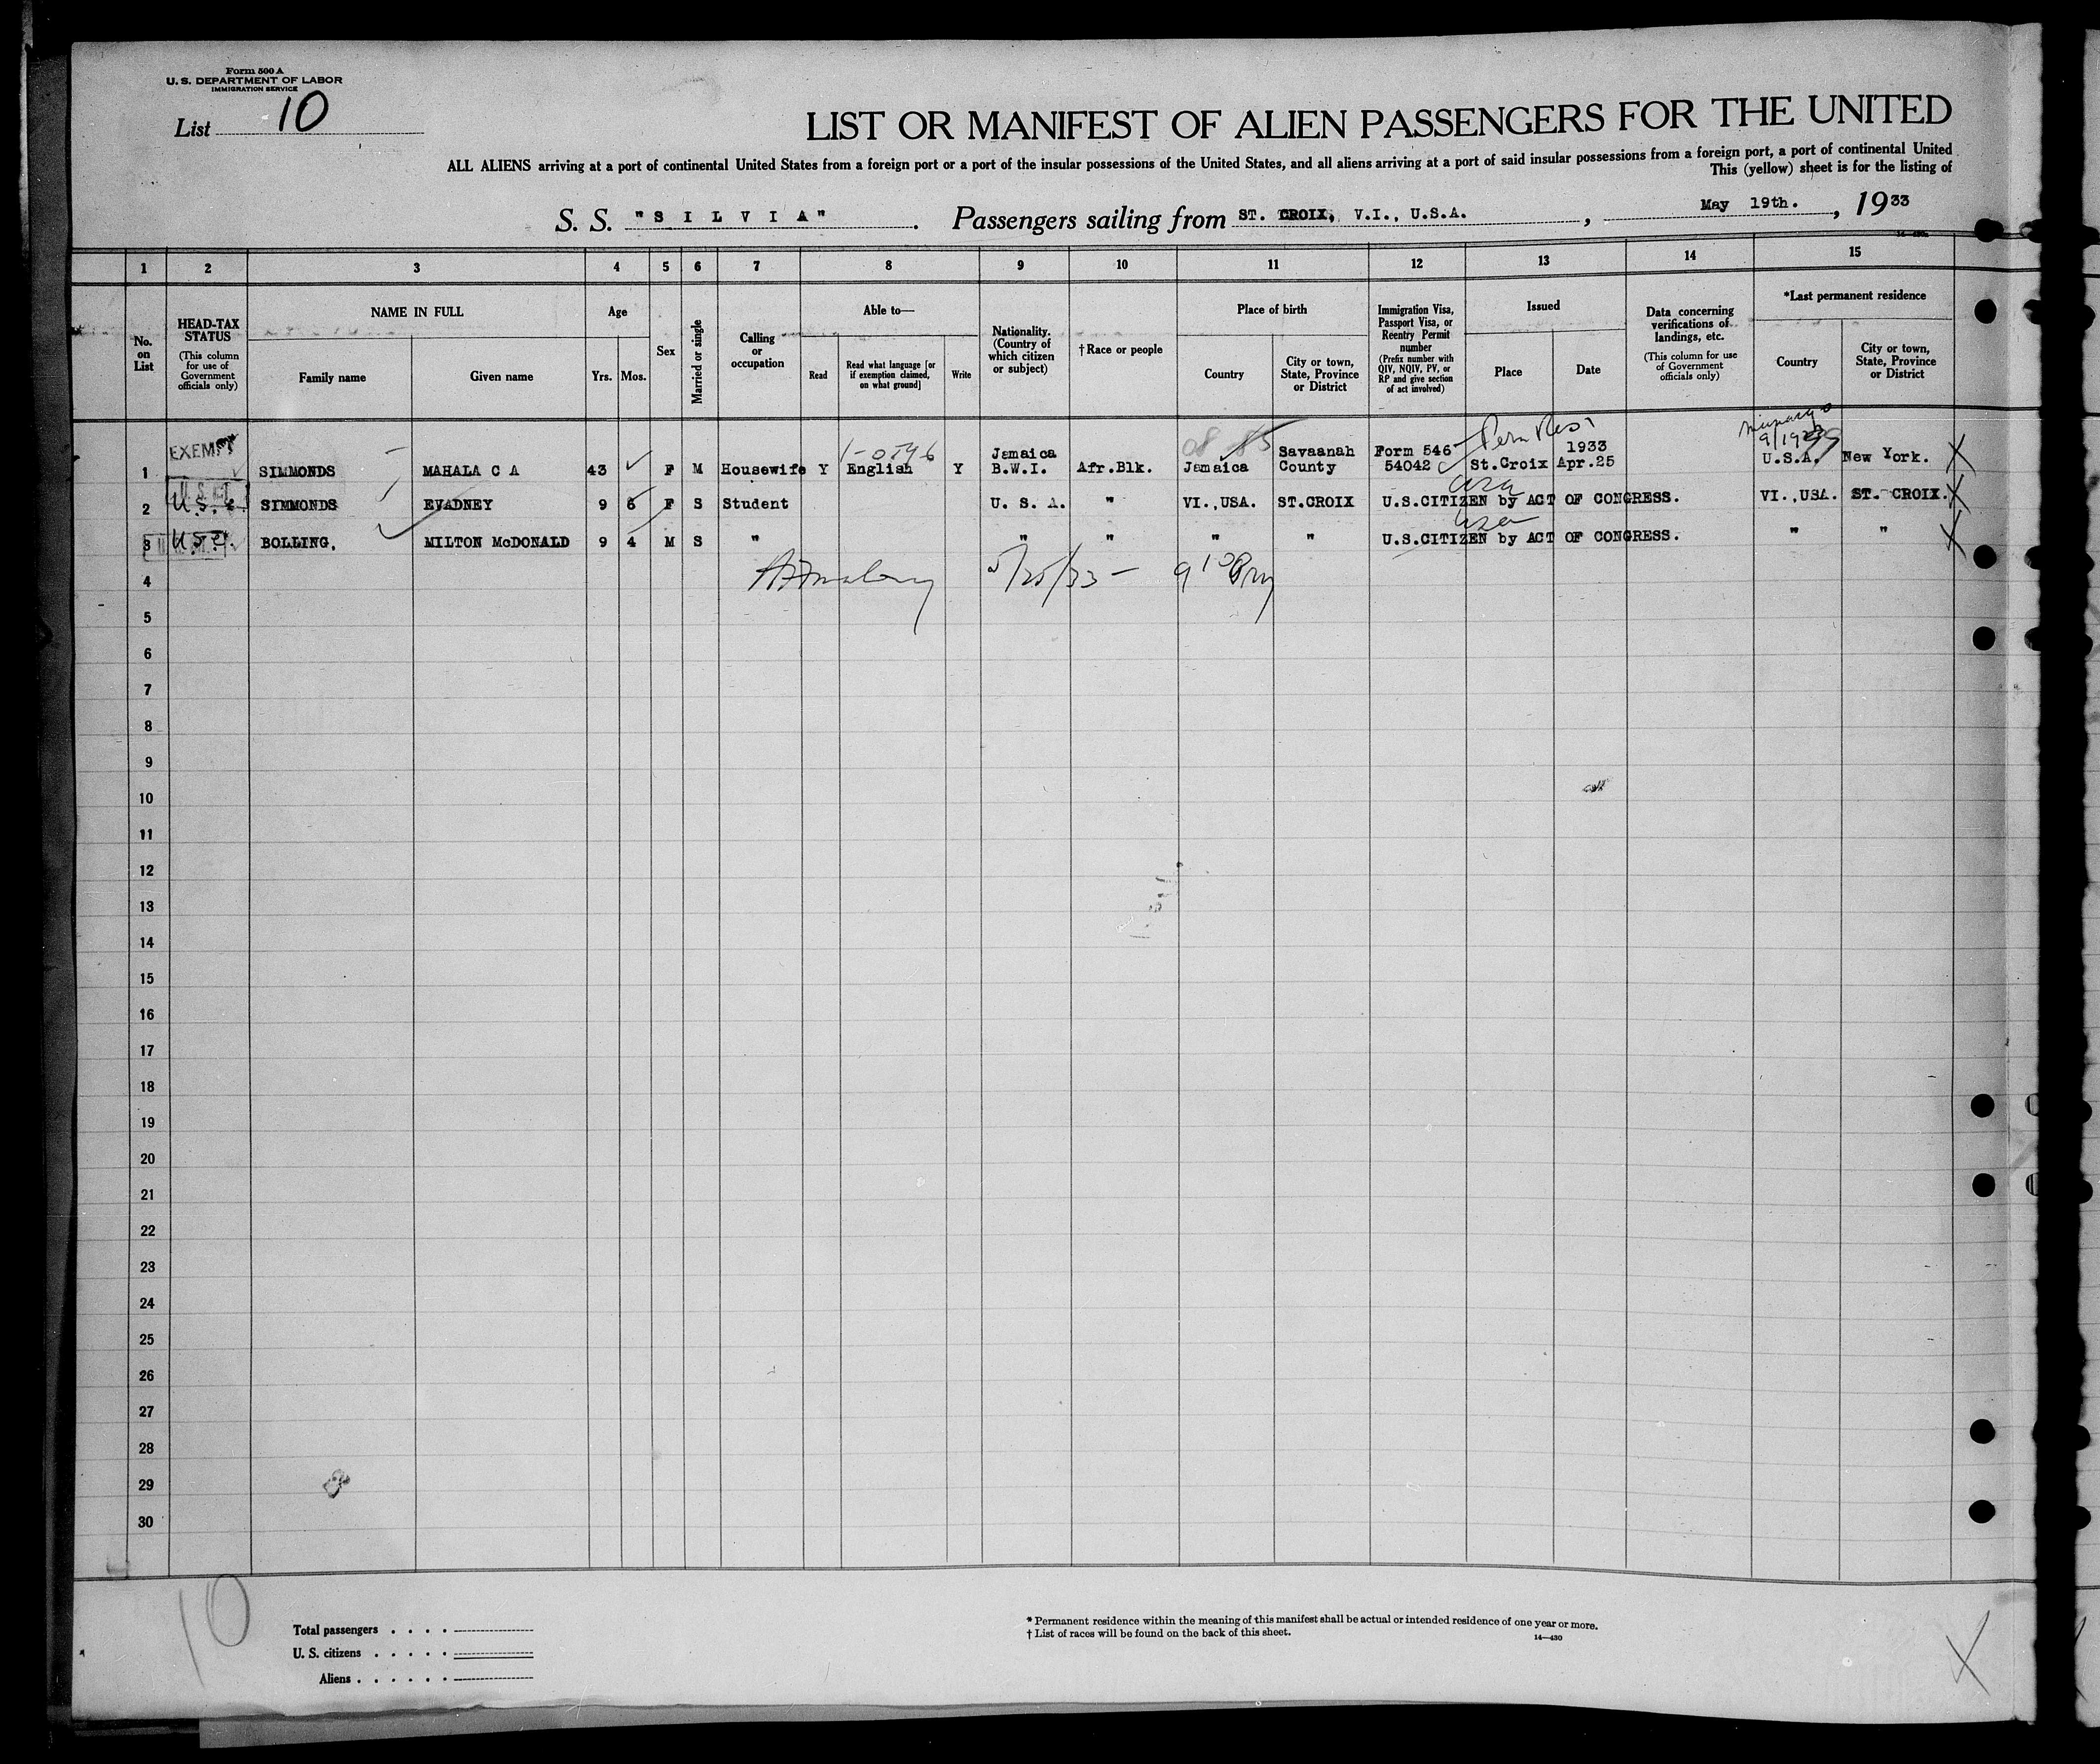 Form 500 A
U. S. DEPARTMENT OF LABOR
IMMIGRATION SERVICE
List 10
LIST OR MANIFEST OF ALIEN PASSENGERS FOR THE UNITED
ALL ALIENS arriving at a port of continental United States from a foreign port or a port of the insular possessions of the United States, and all aliens arriving at a port of said insular possessions from a foreign port, a port of continental United
This (yellow) sheet is for the listing of
S. S. "SILVIA". Passengers sailing from ST. CROIX, V.I., U.S.A., May 19th., 1933
1 2 3 4 5 6 7 8 9 10 11 12 13 14 15
No. on List
HEAD-TAX STATUS
(This column for use of Government officials only)
NAME IN FULL
Family name
Given name
Age
Yrs. Mos.
Sex
Married or single
Calling or occupation
Able to—
Read
Read what language [or if exemption claimed, on what ground]
Write
Nationality. (Country of which citizen or subject)
†Race or people
Place of birth
Country
City or town, State, Province or District
Immigration Visa, Passport Visa, or Reentry Permit number
(Prefix number with QIV, NQIV, PV, or RP and give section of act involved)
Issued
Place
Date
Data concerning verifications of landings, etc.
(This column for use of Government officials only)
*Last permanent residence
Country
City or town, State, Province or District
1 EXEMPT SIMMONDS MAHALA C A 43 F M Housewife Y English Y Jamaica B.W.I. Afr.Blk. Jamaica Savaanah County Form 546 54042 St.Croix 1933 Apr.25 U.S.A. New York.
2 U.S.C. SIMMONDS EVADNEY 9 6 F S Student U. S. A. " VI.,USA. ST.CROIX U.S.CITIZEN by ACT OF CONGRESS. VI.,USA. ST. CROIX.
3 U.S.C. BOLLING, MILTON McDONALD 9 4 M S " " " " " U.S.CITIZEN by ACT OF CONGRESS. " "
4 5/25/33
5
6
7
8
9
10
11
12
13
14
15
16
17
18
19
20
21
22
23
24
25
26
27
28
29
30
10
Total passengers . . . .
U. S. citizens . . . . .
Aliens . . . . . .
* Permanent residence within the meaning of this manifest shall be actual or intended residence of one year or more.
† List of races will be found on the back of this sheet.
14—430